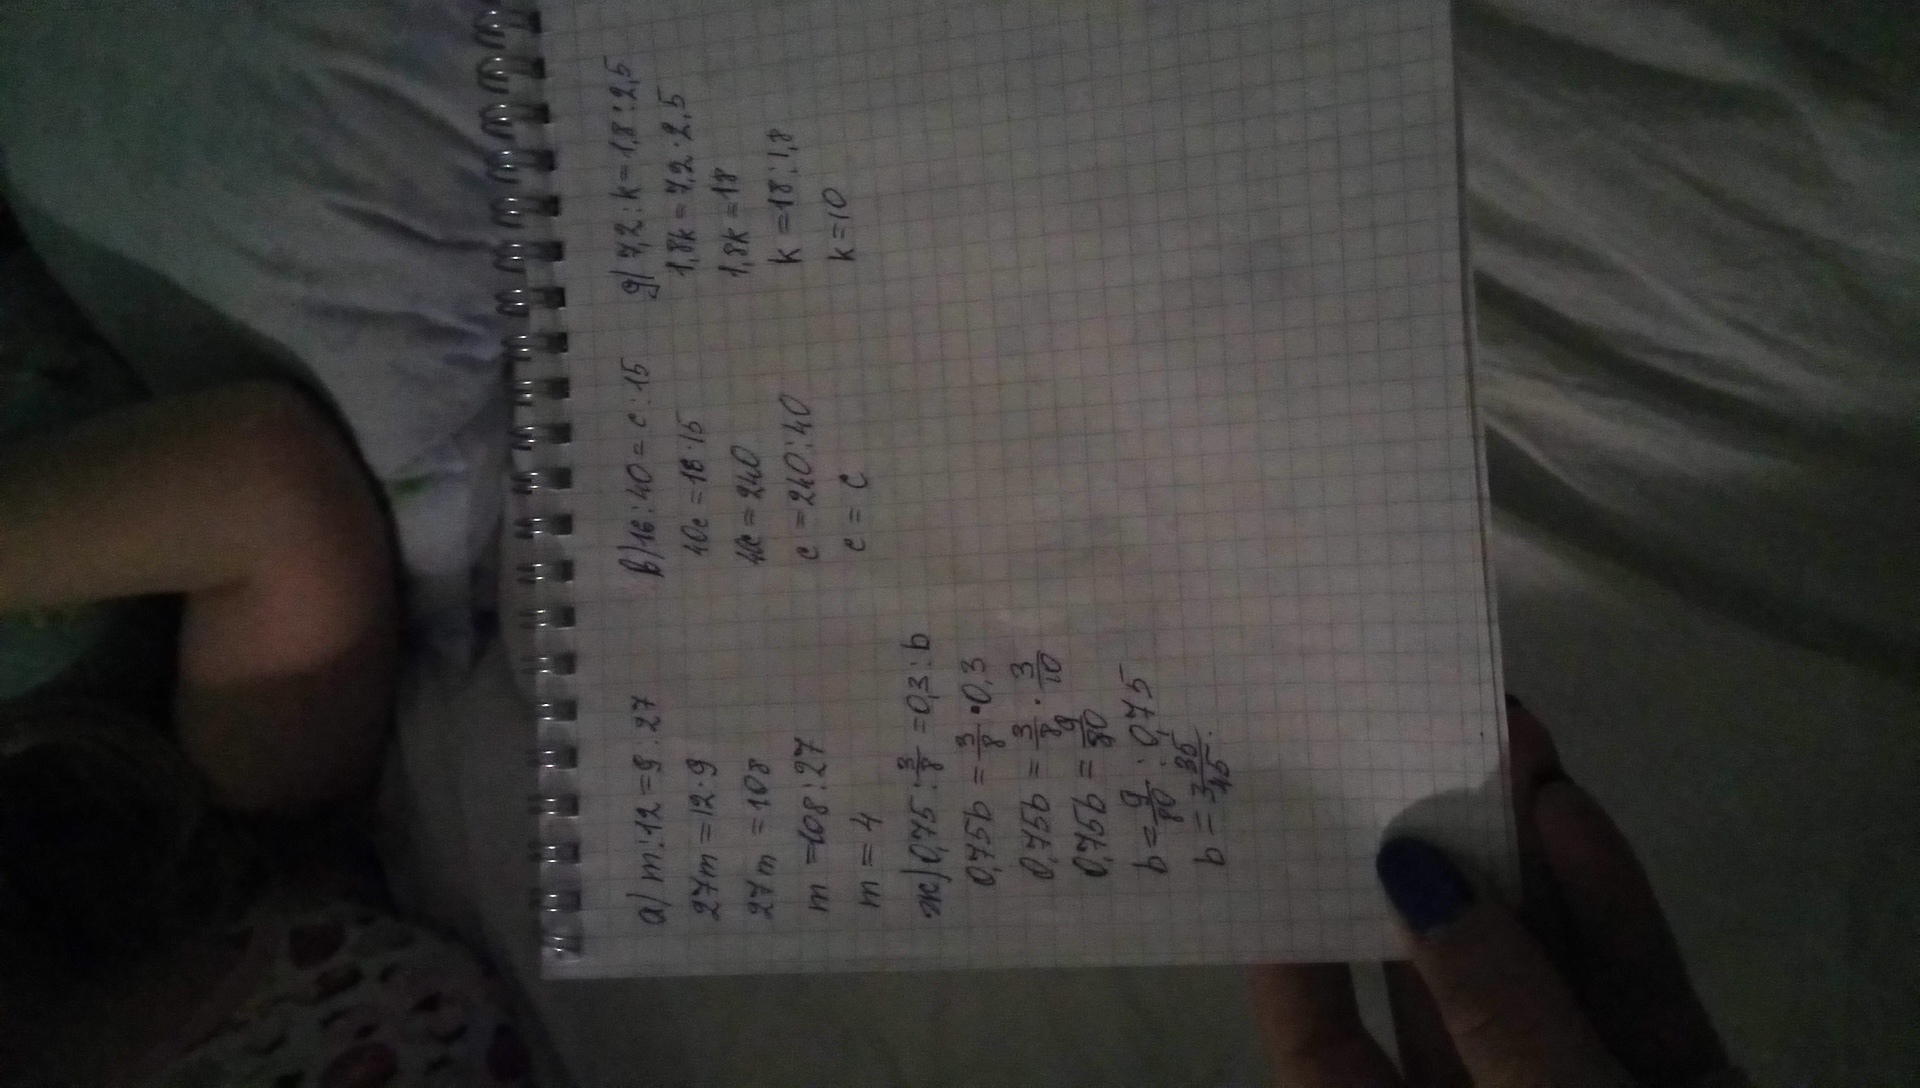 а) m:12=9:27
27m=12·9
27m=108
m=108:27
m=4
в) 16:40=c:15
40c=16·15
40c=240
c=240:40
c=c
д) 7,2:k=1,8:2,5
1,8k=7,2·2,5
1,8k=18
k=18:1,8
k=10
ж) 0,75:3/8=0,3:b
0,75b=3/8·0,3
0,75b=3/8·3/10
0,75b=9/80
b=9/80:0,75